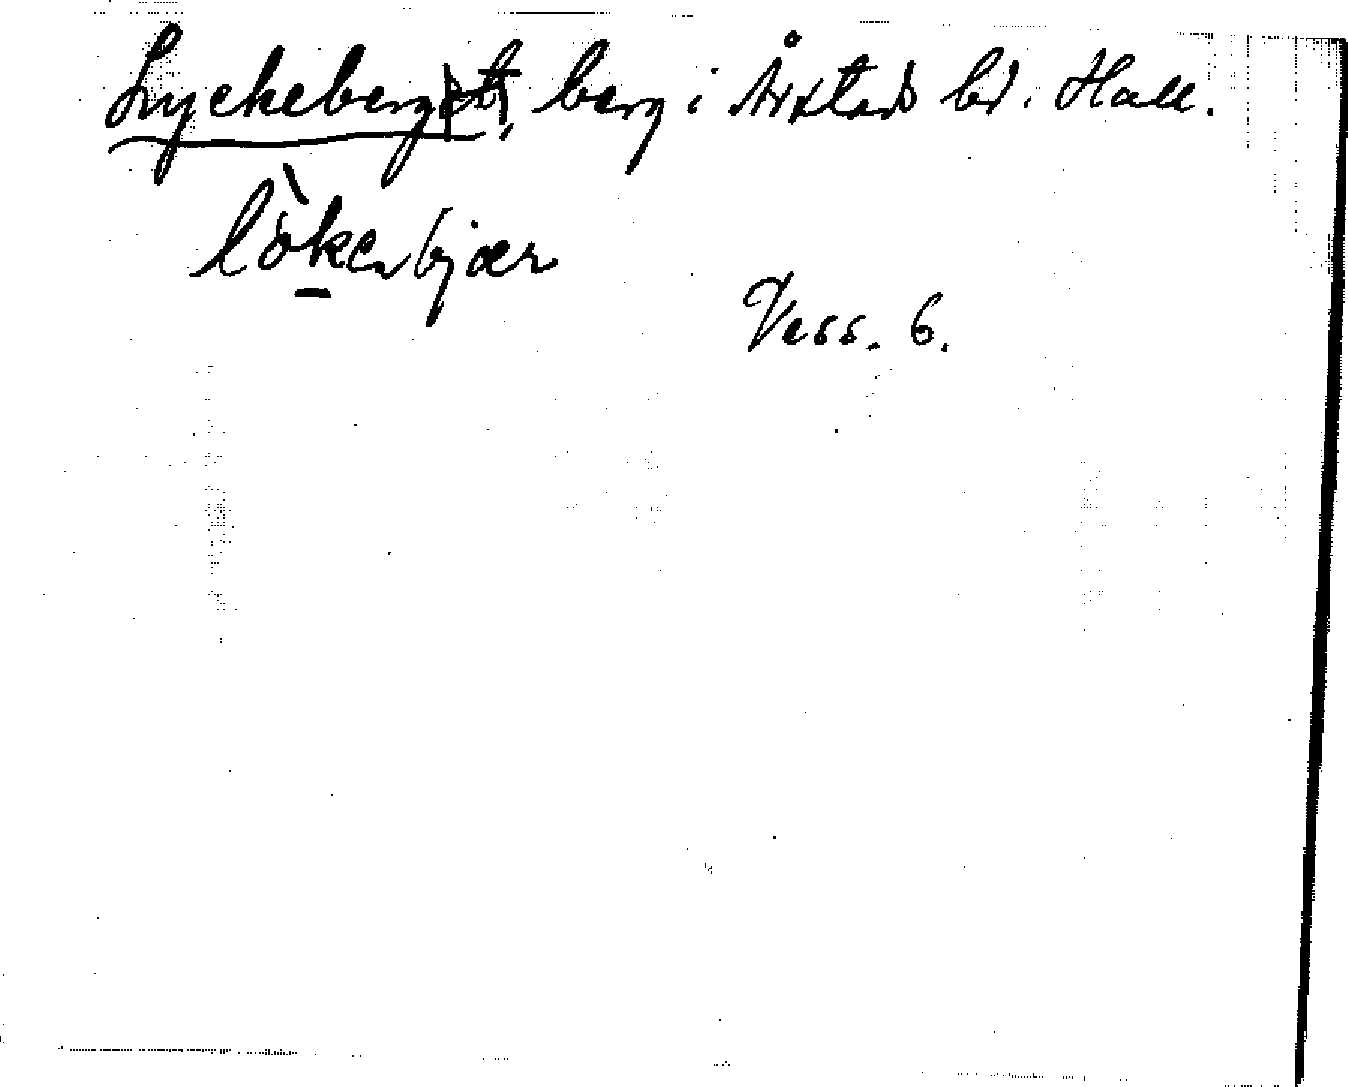 Lyckeberg[et], berg i Årstad hd. Hall.
lökerbjær
Vess. 6.